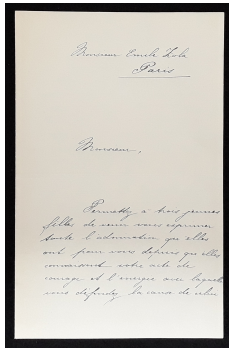 Monsieur Emile Zola
Paris
Monsieur,
Permettez à trois jeunes
filles de venir vous exprimer
toute l'admiration que elles
ont pour vous
votre acte de
courage et l'énergie avec laquelle
vous défendez la cause de celui